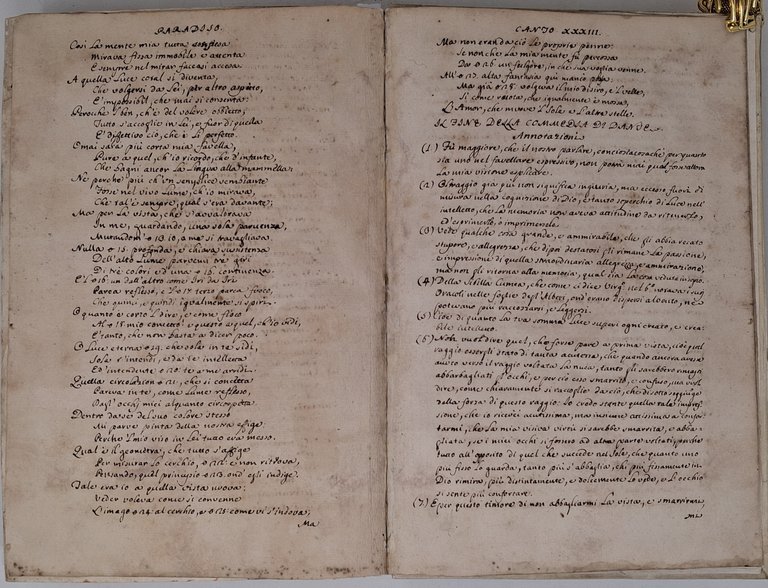 PARADISO.
Così la mente mia tutta sospesa
Mirava fissa immobile e attenta
E sempre nel mirar faceasi accesa.
A quella Luce cotal si diventa,
Che volgersi da Lei, per altro aspetto,
E' impossibil, che mai si consenta:
Peroche 'l ben, ch'è del volere obbietto,
Tutto s'accoglie in lei, e fuor di quella
E' difettivo ciò, che è lì perfetto.
Omai sarà più corta mia favella,
Pure a quel, ch'io ricordo, che d'infante,
Che bagni ancor la lingua alla mammella:
Nò perche più ch'un semplice sembiante
Fosse nel vivo Lume, ch'io mirava,
Che tal'è sempre, qual s'era davante;
Ma per la vista, che s'avvalorava
In me, guardando, una sola parvenza,
Mutandom' 13. io, a me si travagliava.
Nulla 15. profonda, e chiara sussistenza
Dell'alto Lume parvemi tre giri
Di trè colori ed una 15. continenza.
E l' 16. un dall'altro come Iri da Iri
Parea reflesso, e l' 17. terzo parea fuoco,
Che quinci, e quindi igualmente si spiri.
O quanto è corto l dire, e come fioco
Al 18. mio concetto! e questo a quel, ch'io vidi,
E' tanto, che non basta a dicer poco.
O Luce eterna 19. che sola in te sidi,
Sola t'intendi, e da te intelletta
Ed intendente 20. te a me arridi.
Quella circolazion 21. che sì concetta
Pareva in te, come lume reflesso,
Dagl'occhi miei alquanto circonspetta
Dentro da sè del suo colore stesso
Mi parve pinta della nostra effige:
Perche 'l mio viso in lei tutto era messo.
Qual'è il geometra, che tutto s'affige
Per misurar lo cerchio, 22. e non ritrova,
Pensando, quel principio 23. ond'egli indige:
Tale era io a quella vista nuova:
Veder voleva come si convenne
L'imago 24. al cerchio, e 25. come vi s'indova;
Ma
CANTO XXXIII.
Ma non eran da ciò le proprie penne:
Se non che la mia mente fù percossa
Da 26. un fulgore, in che sua voglia venne.
All' 27. alta fantasia quì mancò possa:
Ma già 28. volgeva il mio disiro, e 'l velle,
Sì come ruota, che igualmente è mossa,
L'Amor, che muove 'l Sole e l'altre stelle.
IL FINE DELLA COMMEDIA DI DANTE.
Annotazioni
(1) Fù maggiore, che il nostro parlare, conciosiacosachè per quanto
sia uno nel favellare espressivo, non potrà mai qual fosse allora
la mia visione esplicare.
(2) Oltraggio quì più non significa ingiuria, ma eccesso fuor di
misura nella cognizione di Dio, e tanto soperchio di Luce nell'
intelletto, che la memoria non aveva attitudine da ritenerlo,
ed esprimerlo, o imprimerselo.
(3) Vede qualche cosa grande, e ammirabile, che gli abbia recato
stupore, e allegrezza, che dipoi destatosi gli rimane la passione,
e impressione di quella straordinaria allegrezza, e ammirazione;
ma non gli ritorna alla memoria, qual sia la cosa veduta in sogno.
(4) Della Sibilla Cumea, che come ci dice Virg. nel 6.º notava i suoi
Oracoli nelle foglie degl'Alberi, ond'erano dispersi al vento, nè
potevano più raccorsi, e leggersi.
(5) Cioè di quanto la tua somma Luce superi ogni creato, e crea-
bile intelletto.
(6) Nota vuol dire quel, che forse pare a prima vista, cioè quel
raggio essergli stato di tanta acutezza, che quando ancora avesse
verso il raggio voltata la nuca, tanto gli sarebbero rimasti
abbarbagliati gl'occhi, e perciò esso smarrito, e confuso, ma vuol
dire, come chiaramente si raccoglie da ciò, che di sotto soggiunge
della forza di questo raggio: Io credo stante quella tale impres-
sione, che io ricevei acutissima, ma insieme attissima a confor-
tarmi, che la mia visiva virtù si sarebbe smarrita, e abba-
gliata, se i miei occhi si fossero ad altra parte voltati, perche
tutto all'opposto di quel che succede nel Sole, che quanto uno
più fisso lo guarda, tanto più s'abbaglia, chi più finamente in
Dio rimira, più distintamente, e dolcemente lo vede, e l'occhio
si sente più confortare.
(7) E per questo timore di non abbagliarmi la vista, e smarrirne,
me